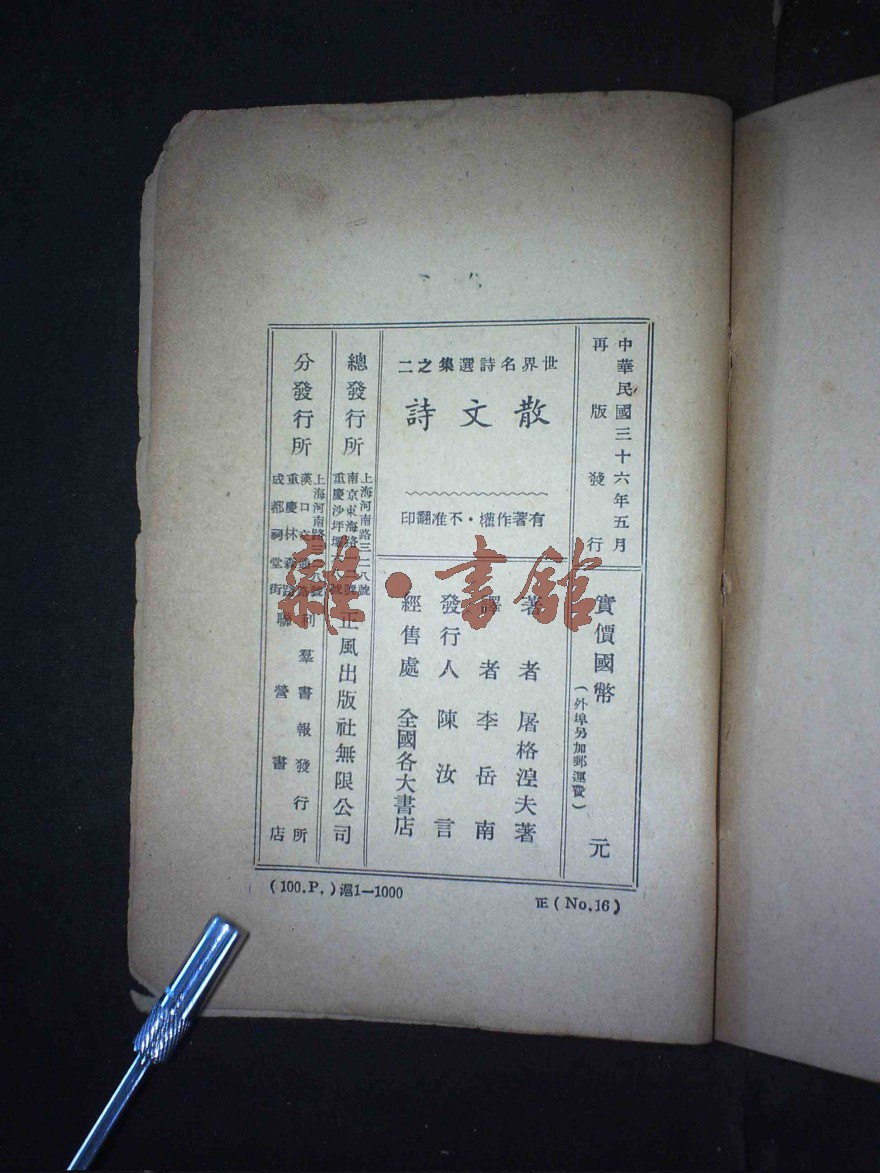 中華民國三十六年五月
再版發行
實價國幣 元
(外埠另加郵運費)
世界名詩選集之二
散文詩
有著作權·不准翻印
著者 屠格湼夫著
譯者 李岳南
發行人 陳汝言
經售處 全國各大書店
總發行所
上海河南路三二八號
南京東海路
重慶沙坪壩
正風出版社無限公司
分發行所
上海河南路三二八號
漢口
重慶林森路
利羣書報發行所
成都祠堂街 聯營書店
(100.P.)滬1—1000
正(No.16)
雜·書館